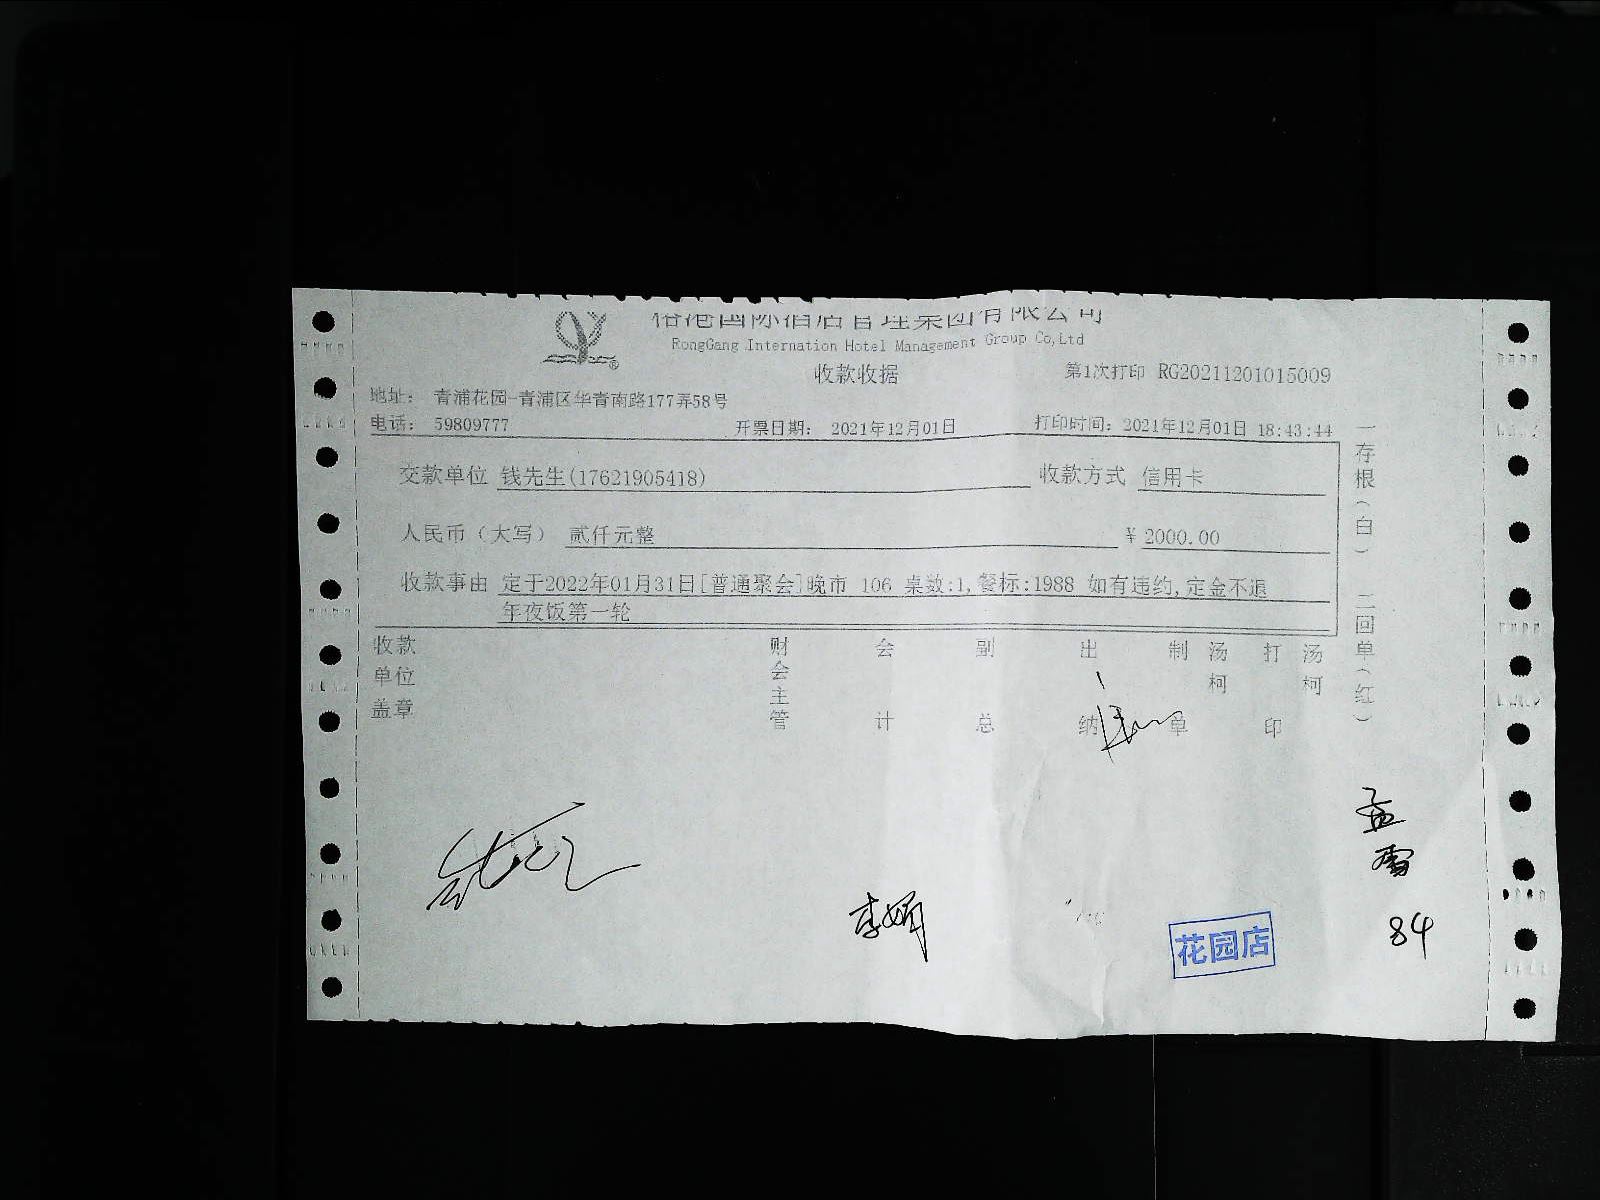 榕港国际酒店管理集团有限公司
RongGang Internation Hotel Management Group Co,Ltd
收款收据
第1次打印 RG20211201015009
地址： 青浦花园-青浦区华青南路177弄58号
电话： 59809777 开票日期： 2021年12月01日 打印时间：2021年12月01日 18:43:44
交款单位 钱先生(17621905418) 收款方式 信用卡
人民币（大写） 贰仟元整 ￥2000.00
收款事由 定于2022年01月31日[普通聚会]晚市 106 桌数:1,餐标:1988 如有违约,定金不退
年夜饭第一轮
收款单位盖章 财会主管 会计 副总 出纳 制单 汤柯 打印 汤柯
一存根（白） 二回单（红）
孟雪
84
李娟
花园店